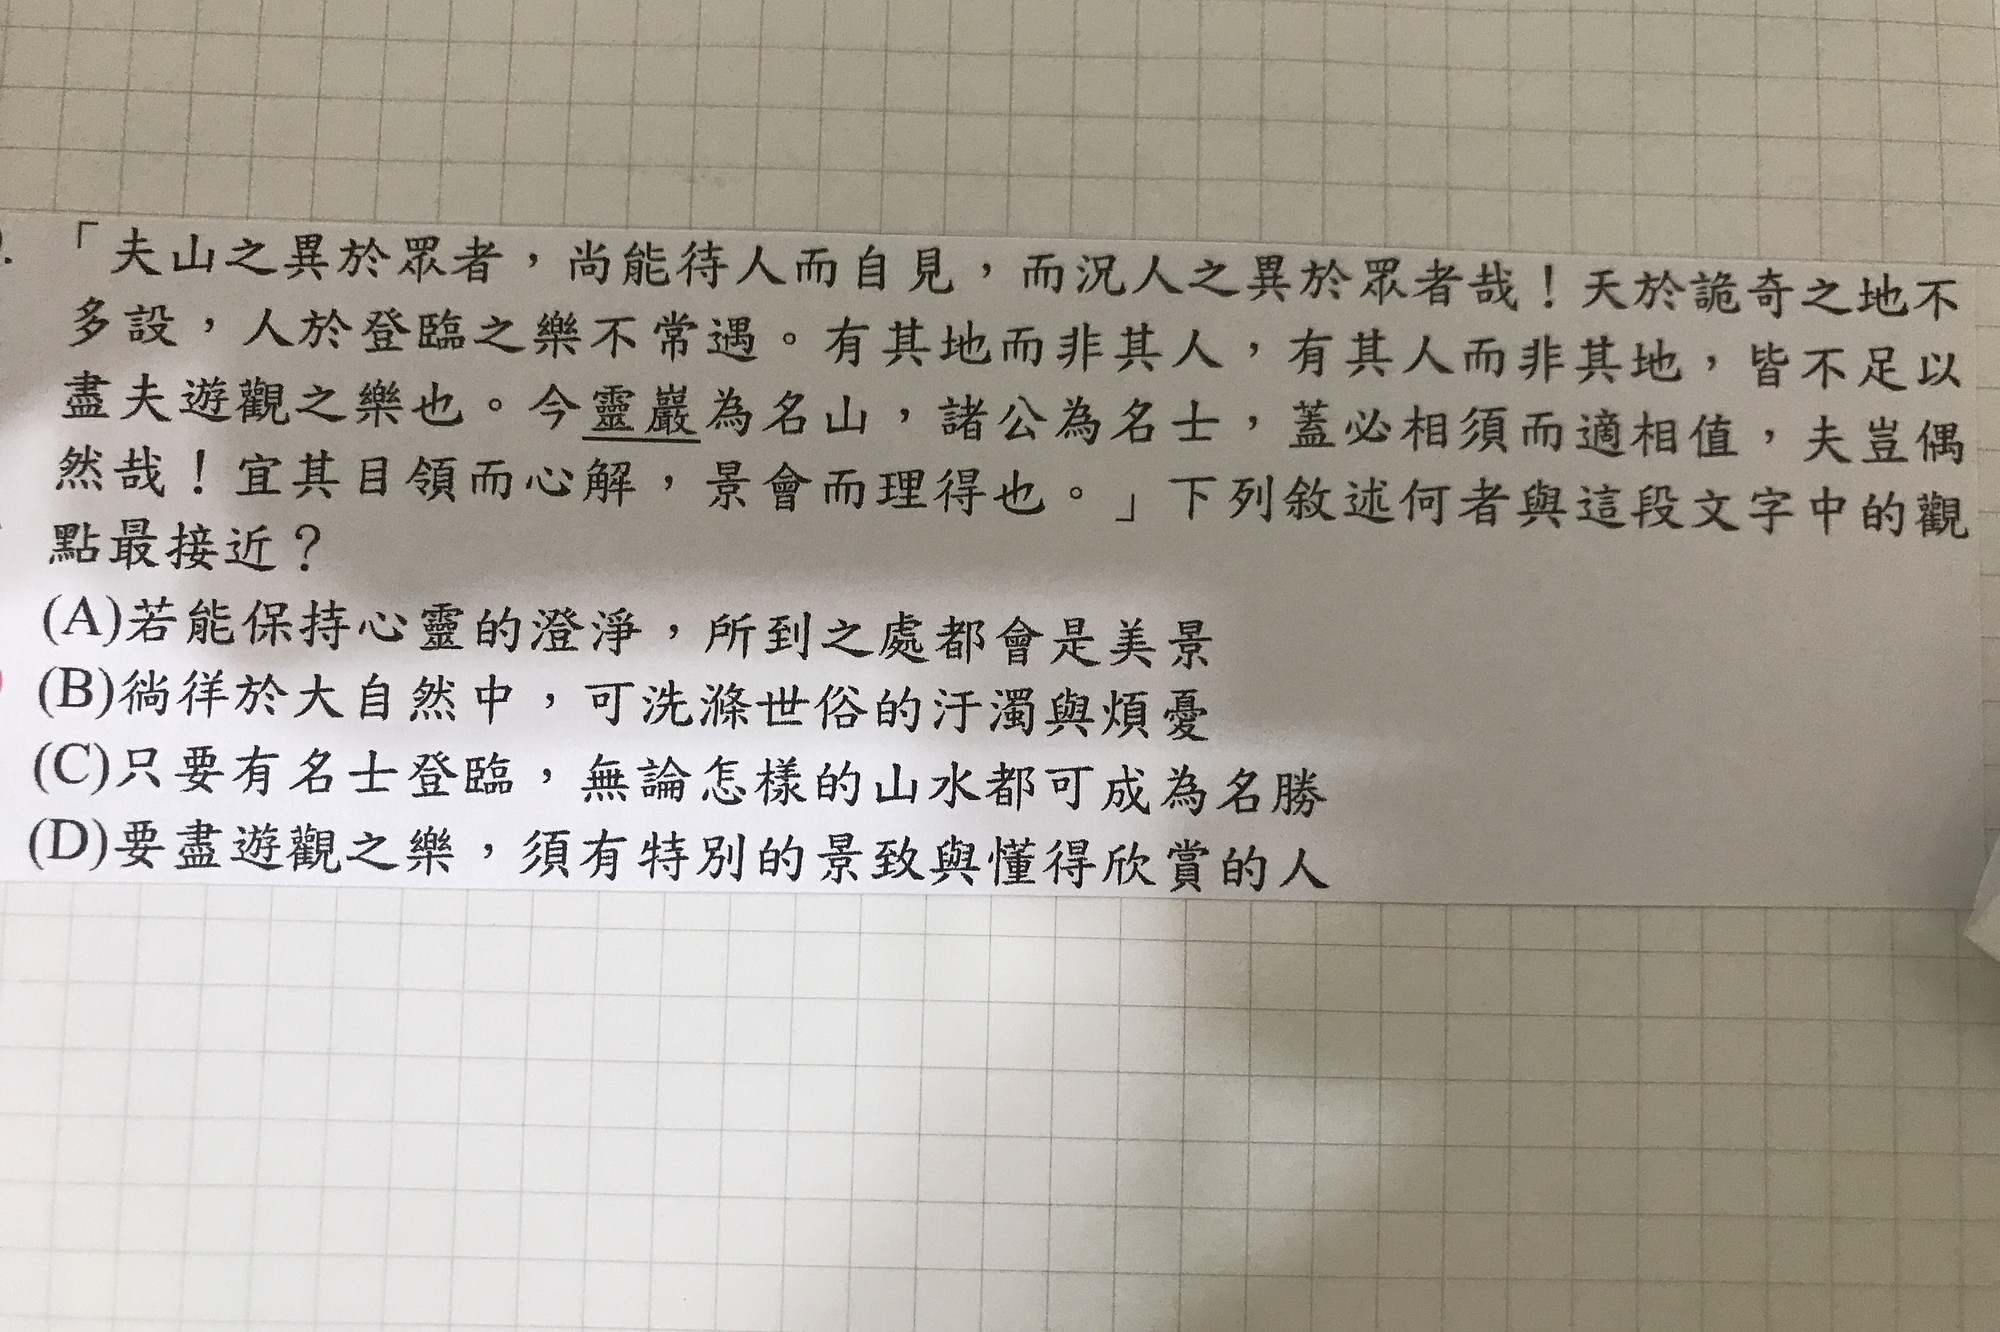 「夫山之異於眾者，尚能待人而自見，而況人之異於眾者哉！天於詭奇之地不
多設，人於登臨之樂不常遇。有其地而非其人，有其人而非其地，皆不足以
盡夫遊觀之樂也。今靈巖為名山，諸公為名士，蓋必相須而適相值，夫豈偶
然哉！宜其目領而心解，景會而理得也。」下列敘述何者與這段文字中的觀
點最接近？
(A)若能保持心靈的澄淨，所到之處都會是美景
(B)徜徉於大自然中，可洗滌世俗的汙濁與煩憂
(C)只要有名士登臨，無論怎樣的山水都可成為名勝
(D)要盡遊觀之樂，須有特別的景致與懂得欣賞的人